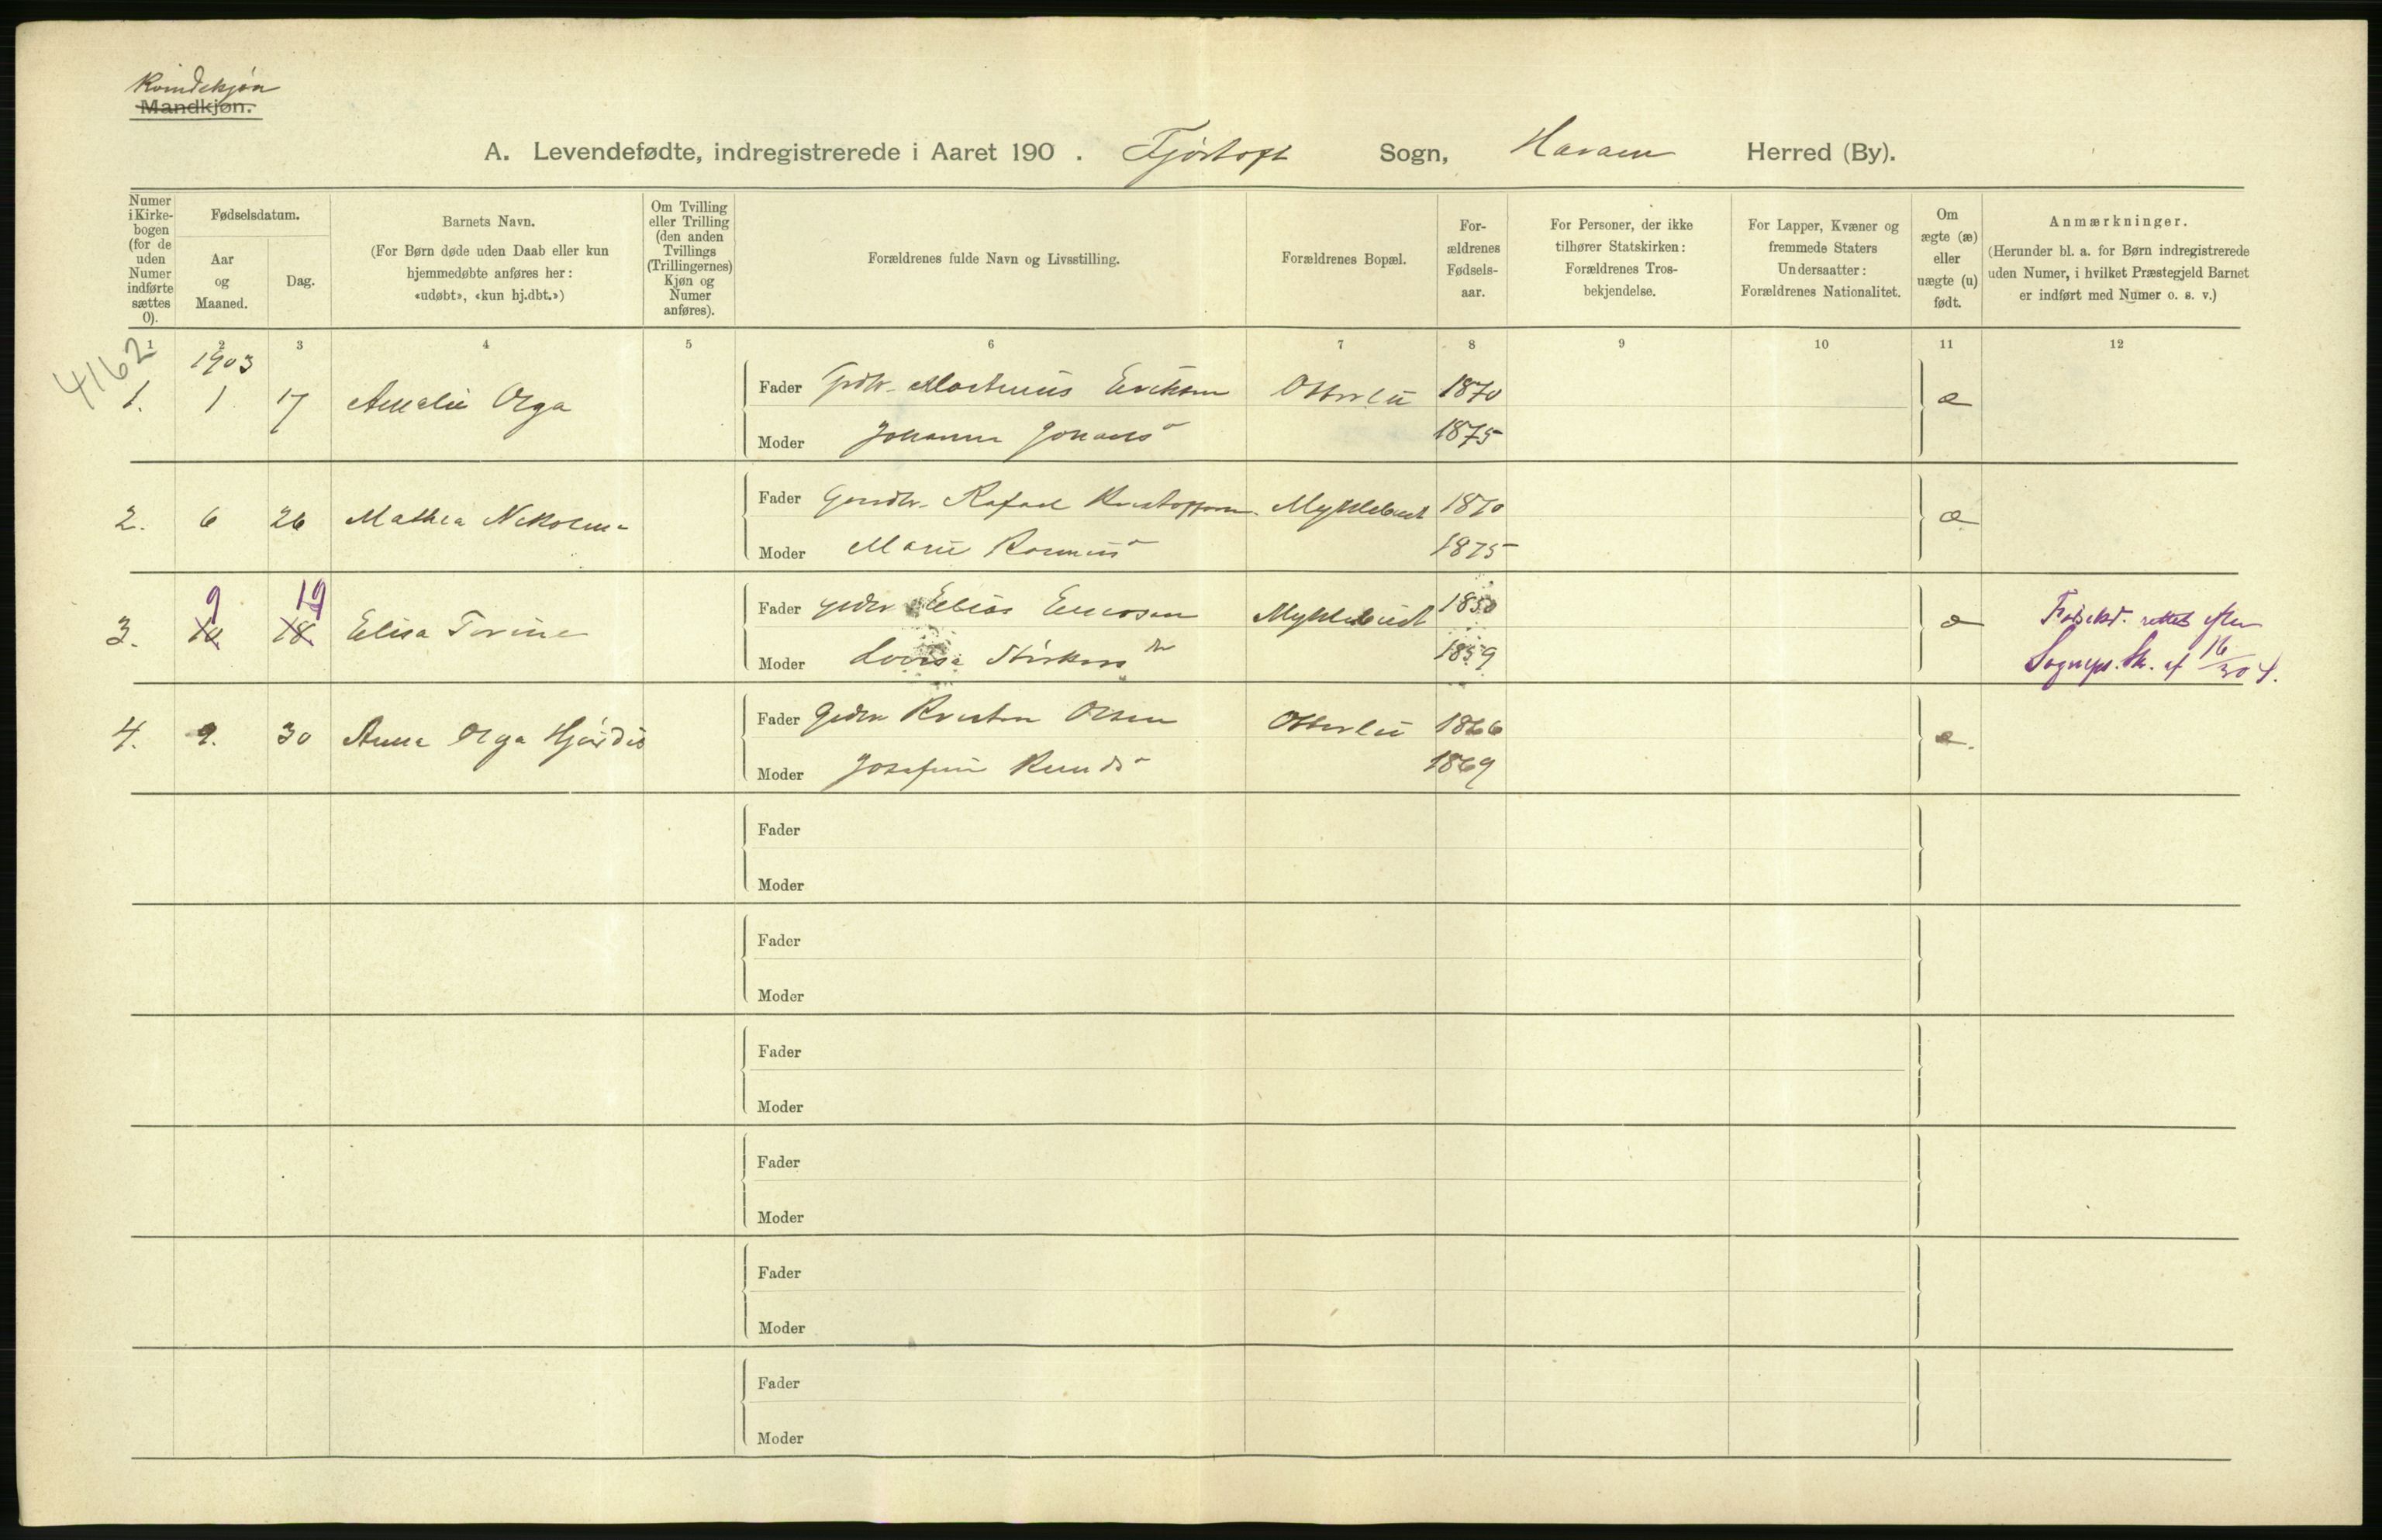 Kvindekjøn
Mandkjøn.
A. Levendefødte, indregistrerede i Aaret 190 . Fjørtoft Sogn, Haram Herred (By).
Numer i Kirke- bogen (for de uden Numer indførte sættes 0).
Fødselsdatum.
Aar og Maaned.
Dag.
Barnets Navn.
(For Børn døde uden Daab eller kun
hjemmedøbte anføres her:
«udøbt», «kun hj.dbt.»)
Om Tvilling eller Trilling (den anden Tvillings (Trillingernes) Kjøn og Numer anføres).
Forældrenes fulde Navn og Livsstilling.
Forældrenes Bopæl.
For- ældrenes Fødsels- aar.
For Personer, der ikke
tilhører Statskirken:
Forældrenes Tros-
bekjendelse.
For Lapper, Kvæner og
fremmede Staters
Undersaatter:
Forældrenes Nationalitet.
Om ægte (æ) eller uægte (u) født.
Anmærkninger.
(Herunder bl. a. for Børn indregistrerede
uden Numer, i hvilket Præstegjeld Barnet
er indført med Numer o. s. v.)
1 2 3 4 5 6 7 8 9 10 11 12
4162
1903
1. 1 17 Amalie Olga Fader Martinus Eriksen Otterlei 1870 æ
Moder Johanne Johans 1875
2. 6 26 Mathea Nikoline Fader Rafael Kristoffersen Myklebust 1870 æ
Moder Marie Rasmus 1875
9 19
3. 10 18 Elisa Fader Elias Myklebust 1850 æ Fødselsd. rettet efter
Moder Lovise 1859 Sognepr. Skr. af 16/3 04.
4. 9. 30 Anna Olga Hjørdis Fader Kristen Olsen Otterlei 1866 æ.
Moder Josefine Knuds 1869
Fader
Moder
Fader
Moder
Fader
Moder
Fader
Moder
Fader
Moder
Fader
Moder